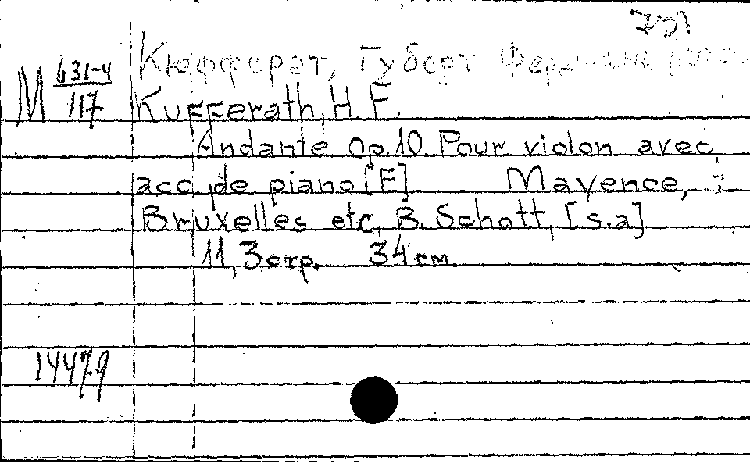 М 631-4/117
Кюфферат, Губерт
Kufferath, H. F.
Andante Op. 10. Pour violon avec
acc. de piano [F] Mayence,
Bruxelles etc, B. Schott, [s.a]
11, 3 стр. 34 см.
14479